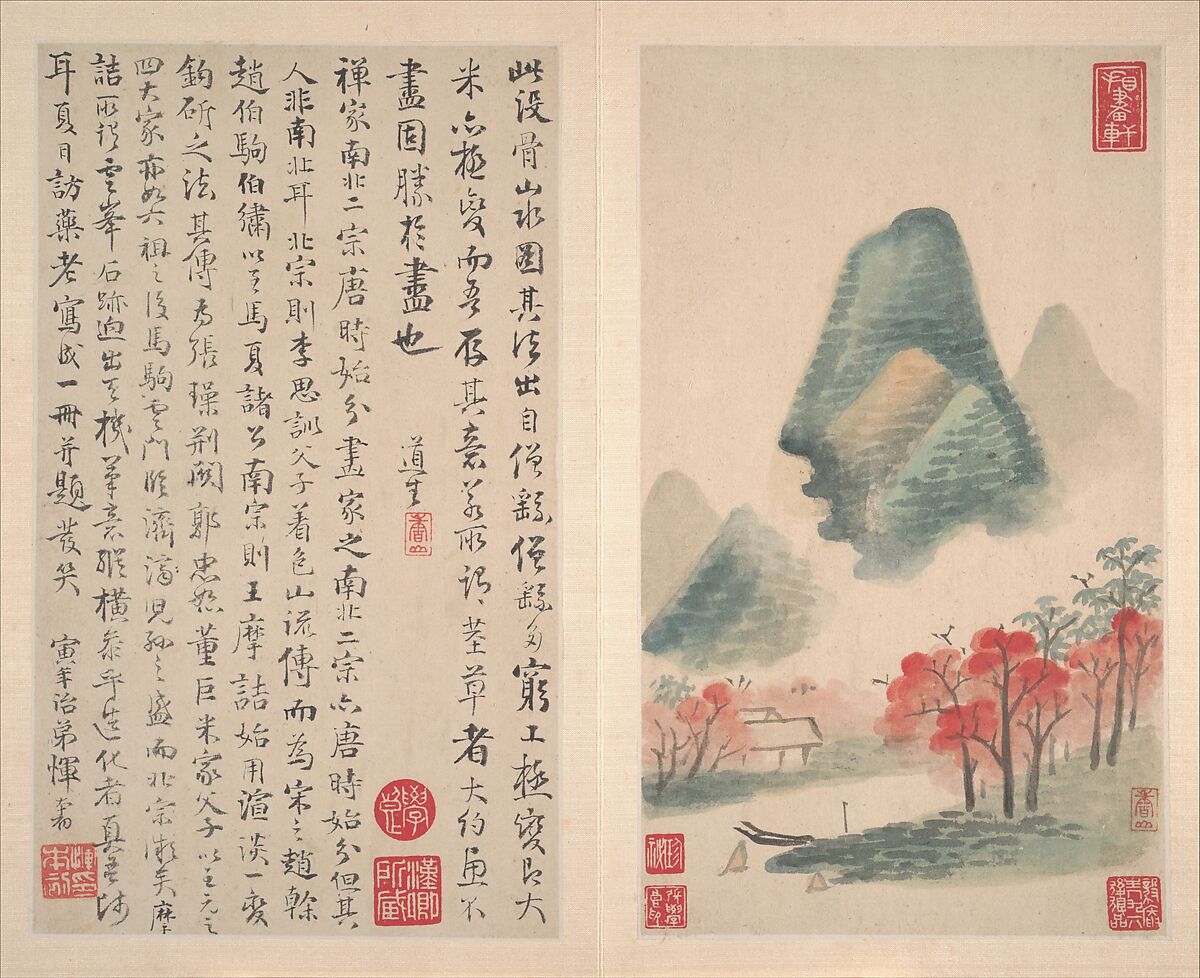 此没骨山水圖其法出自僧繇僧繇多窮工極變即大
米亦極變而吾存其意若所謂茎草者大約画不
盡固勝於盡也
道生
香山
禅家南北二宗唐時始分畫家之南北二宗亦唐時始分但其
人非南北耳北宗則李思訓父子着色山流傳而為宋之趙幹
趙伯駒伯驌以至馬夏諸公南宗則王摩詰始用渲淡一變
鈎斫之法其傳為張璪荆關郭忠恕董巨米家父子以至元之
四大家亦如六祖之後馬駒雲門臨濟濟兒孫之盛而北宗微矣摩
詰所謂雲峯石跡迥出天機筆意縱橫參乎造化者真吾師
耳夏日訪藥老寫成一冊并題發笑
寅年治弟惲
漢卿所藏
香山
珍祕